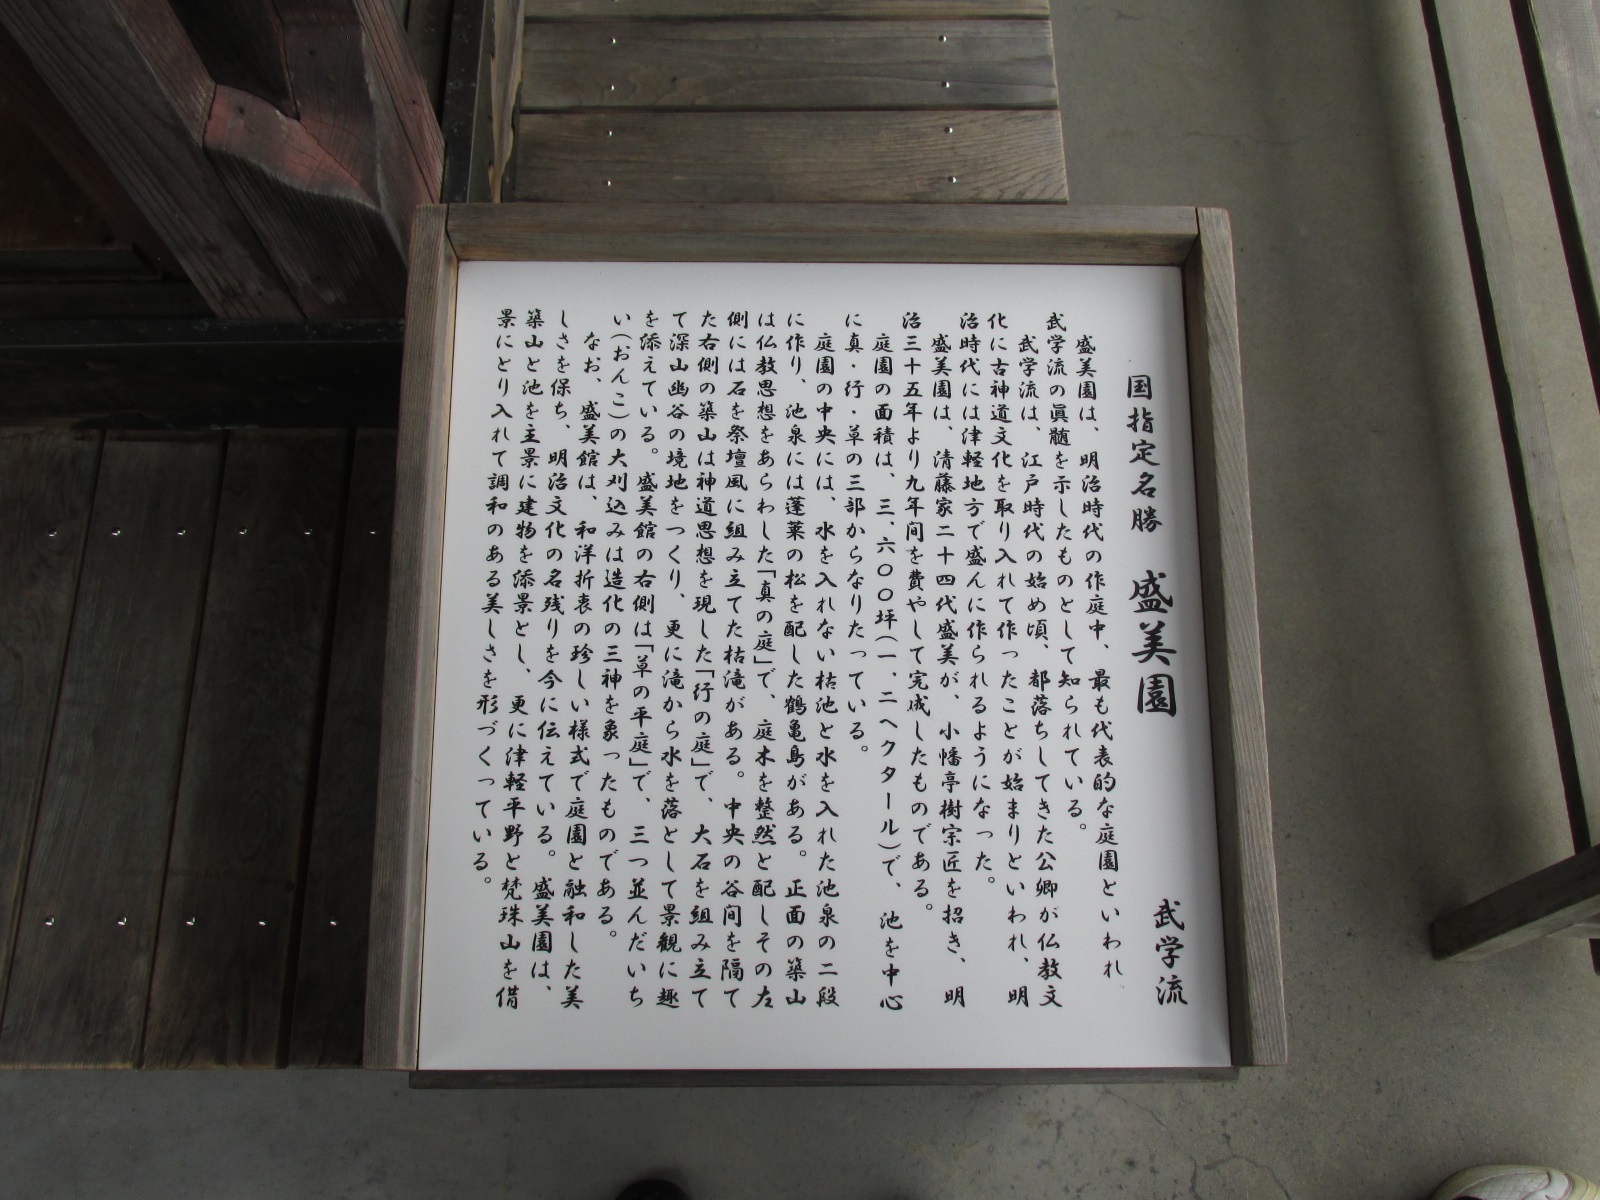 国指定名勝 盛美園 武学流
盛美園は、明治時代の作庭中、最も代表的な庭園といわれ
武学流の真髄を示したものとして知られている。
武学流は、江戸時代の始め頃、都落ちしてきた公卿が仏教文
化に古神道文化を取り入れて作ったことが始まりといわれ、明
治時代には津軽地方で盛んに作られるようになった。
盛美園は、清藤家二十四代盛美が、小幡亭樹宗匠を招き、明
治三十五年より九年間を費やして完成したものである。
庭園の面積は、三、六〇〇坪(一、二ヘクタール)で、池を中心
に真・行・草の三部からなりたっている。
庭園の中央には、水を入れない枯池と水を入れた池泉の二段
に作り、池泉には蓬莱の松を配した鶴亀島がある。正面の築山
は仏教思想をあらわした「真の庭」で、庭木を整然と配しその左
側には石を祭壇風に組み立てた枯滝がある。中央の谷間を隔て
た右側の築山は神道思想を現した「行の庭」で、大石を組み立て
て深山幽谷の境地をつくり、更に滝から水を落として景観に趣
を添えている。盛美館の右側は「草の平庭」で、三つ並んだいち
い(おんこ)の大刈込みは造化の三神を象ったものである。
なお、盛美館は、和洋折衷の珍しい様式で庭園と融和した美
しさを保ち、明治文化の名残りを今に伝えている。盛美園は、
築山と池を主景に建物を添景とし、更に津軽平野と梵珠山を借
景にとり入れて調和のある美しさを形づくっている。